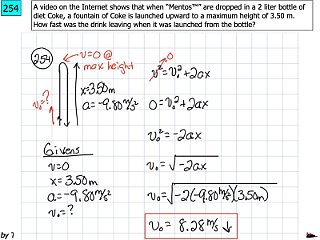 254
A video on the Internet shows that when "Mentos™" are dropped in a 2 liter bottle of
diet Coke, a fountain of Coke is launched upward to a maximum height of 3.50 m.
How fast was the drink leaving when it was launched from the bottle?
254
v=0 @
max height
v₀=?
x=3.50m
a=-9.80m/s²
Givens
v=0
x=3.50m
a=-9.80m/s²
v₀=?
0
v²=v₀²+2ax
0=v₀²+2ax
v₀²=-2ax
v₀=√-2ax
v₀=√-2(-9.80m/s²)(3.50m)
v₀= 8.28m/s ↓
by 7